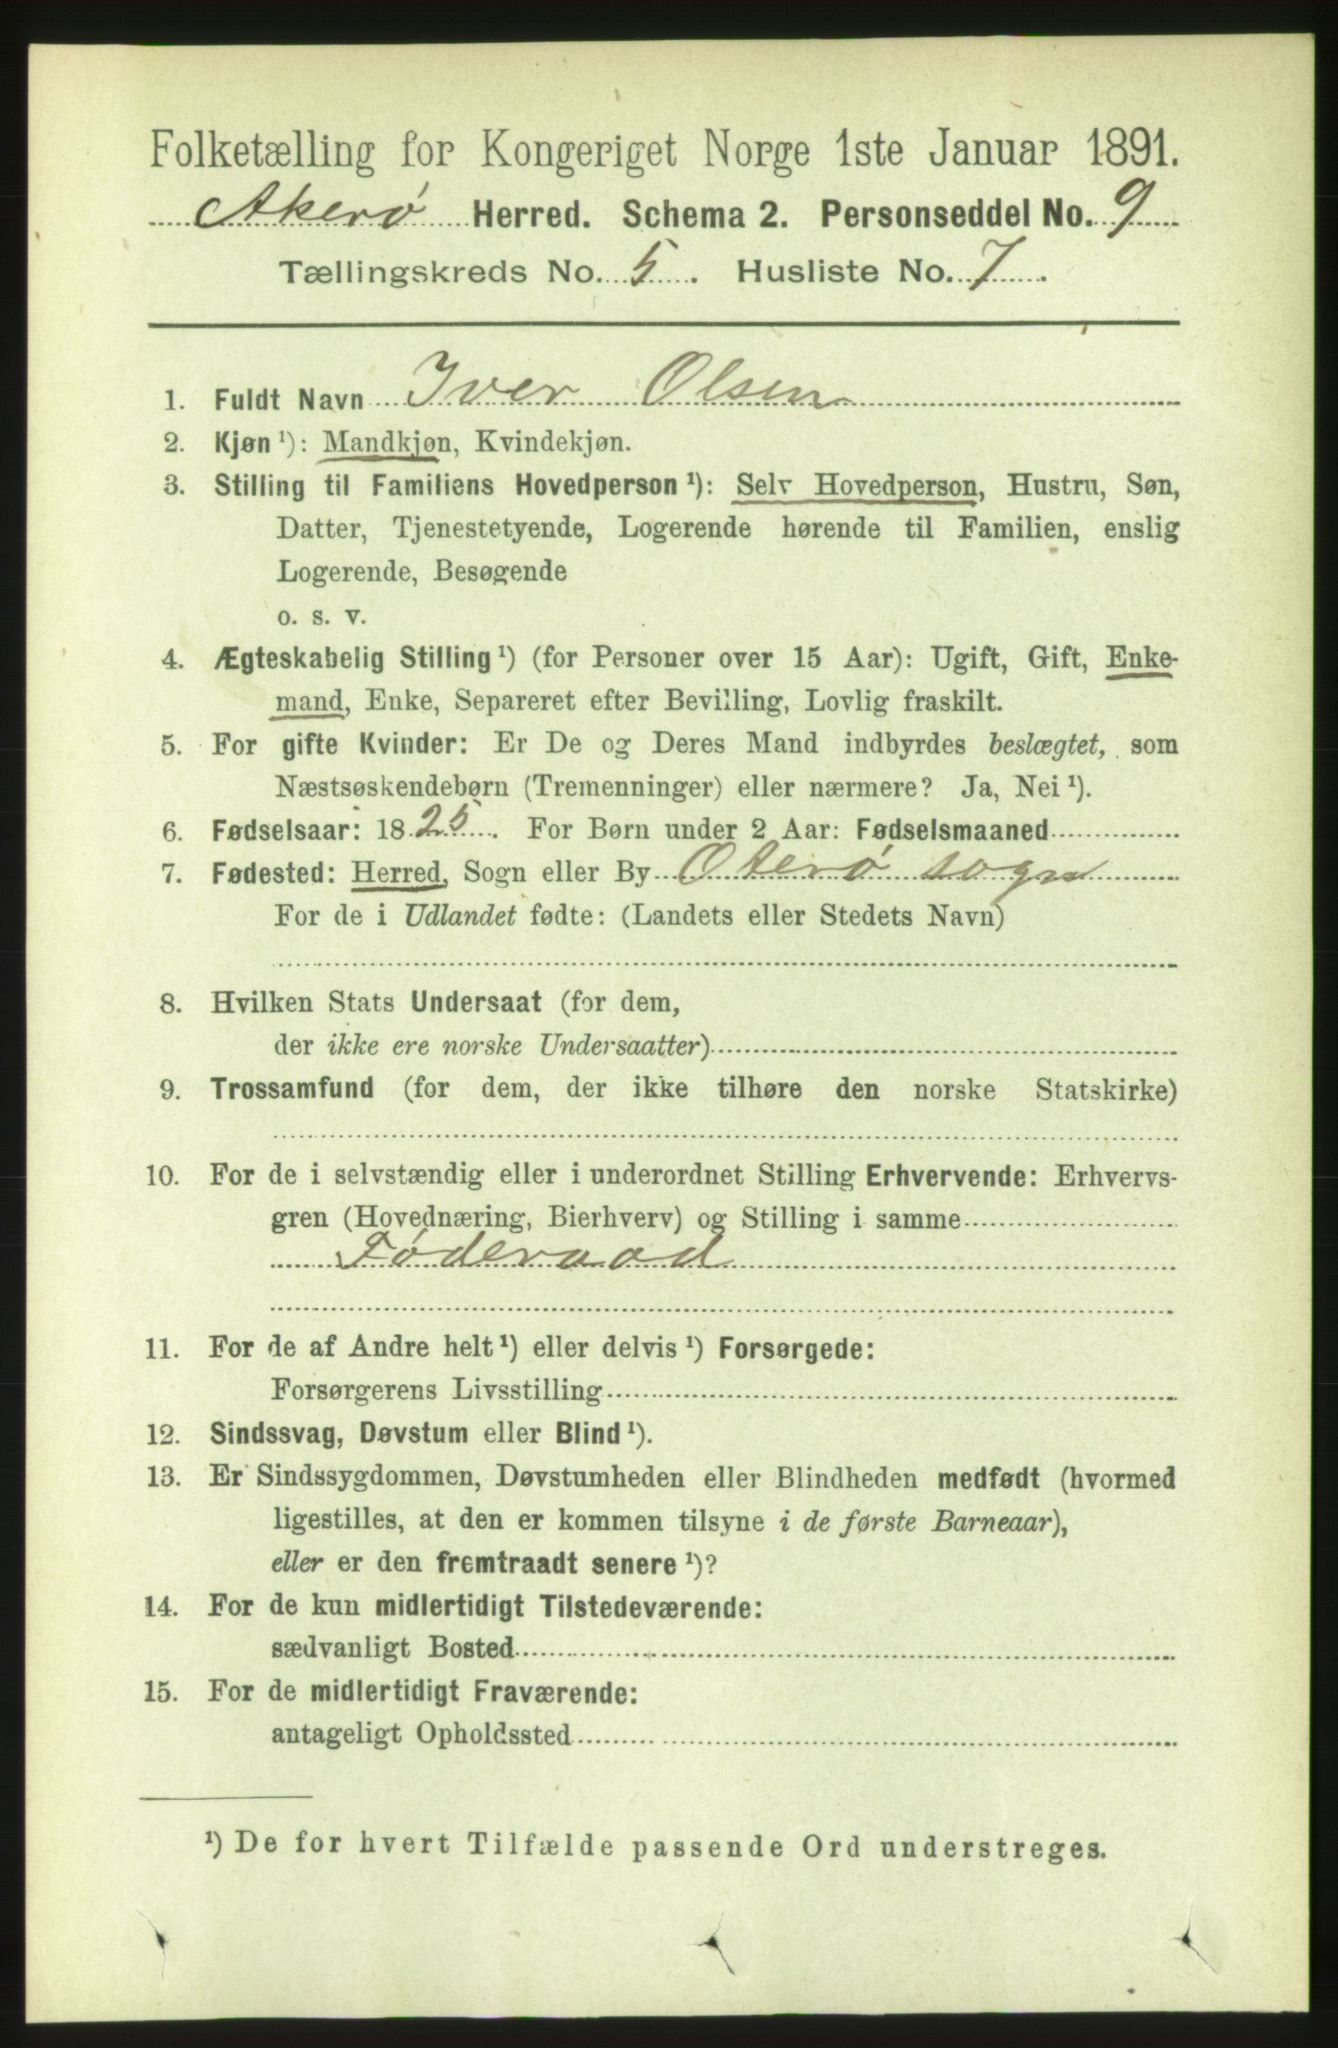 Folketælling for Kongeriget Norge 1ste Januar 1891.
Akerø Herred. Schema 2. Personseddel No. 9
Tællingskreds No. 5. Husliste No. 7.
1. Fuldt Navn Iver Olsen
2. Kjøn ¹): Mandkjøn, Kvindekjøn.
3. Stilling til Familiens Hovedperson ¹): Selv Hovedperson, Hustru, Søn,
Datter, Tjenestetyende, Logerende hørende til Familien, enslig
Logerende, Besøgende
o. s. v.
4. Ægteskabelig Stilling ¹) (for Personer over 15 Aar): Ugift, Gift, Enke-
mand, Enke, Separeret efter Bevilling, Lovlig fraskilt.
5. For gifte Kvinder: Er De og Deres Mand indbyrdes beslægtet, som
Næstsøskendebørn (Tremenninger) eller nærmere? Ja, Nei ¹).
6. Fødselsaar: 1825. For Børn under 2 Aar: Fødselsmaaned
7. Fødested: Herred, Sogn eller By Oterø sogn
For de i Udlandet fødte: (Landets eller Stedets Navn)
8. Hvilken Stats Undersaat (for dem,
der ikke ere norske Undersaatter)
9. Trossamfund (for dem, der ikke tilhøre den norske Statskirke)
10. For de i selvstændig eller i underordnet Stilling Erhvervende: Erhvervs-
gren (Hovednæring, Bierhverv) og Stilling i samme
Føderaad
11. For de af Andre helt ¹) eller delvis ¹) Forsørgede:
Forsørgerens Livsstilling
12. Sindssvag, Døvstum eller Blind ¹).
13. Er Sindssygdommen, Døvstumheden eller Blindheden medfødt (hvormed
ligestilles, at den er kommen tilsyne i de første Barneaar),
eller er den fremtraadt senere ¹)?
14. For de kun midlertidigt Tilstedeværende:
sædvanligt Bosted
15. For de midlertidigt Fraværende:
antageligt Opholdssted
¹) De for hvert Tilfælde passende Ord understreges.